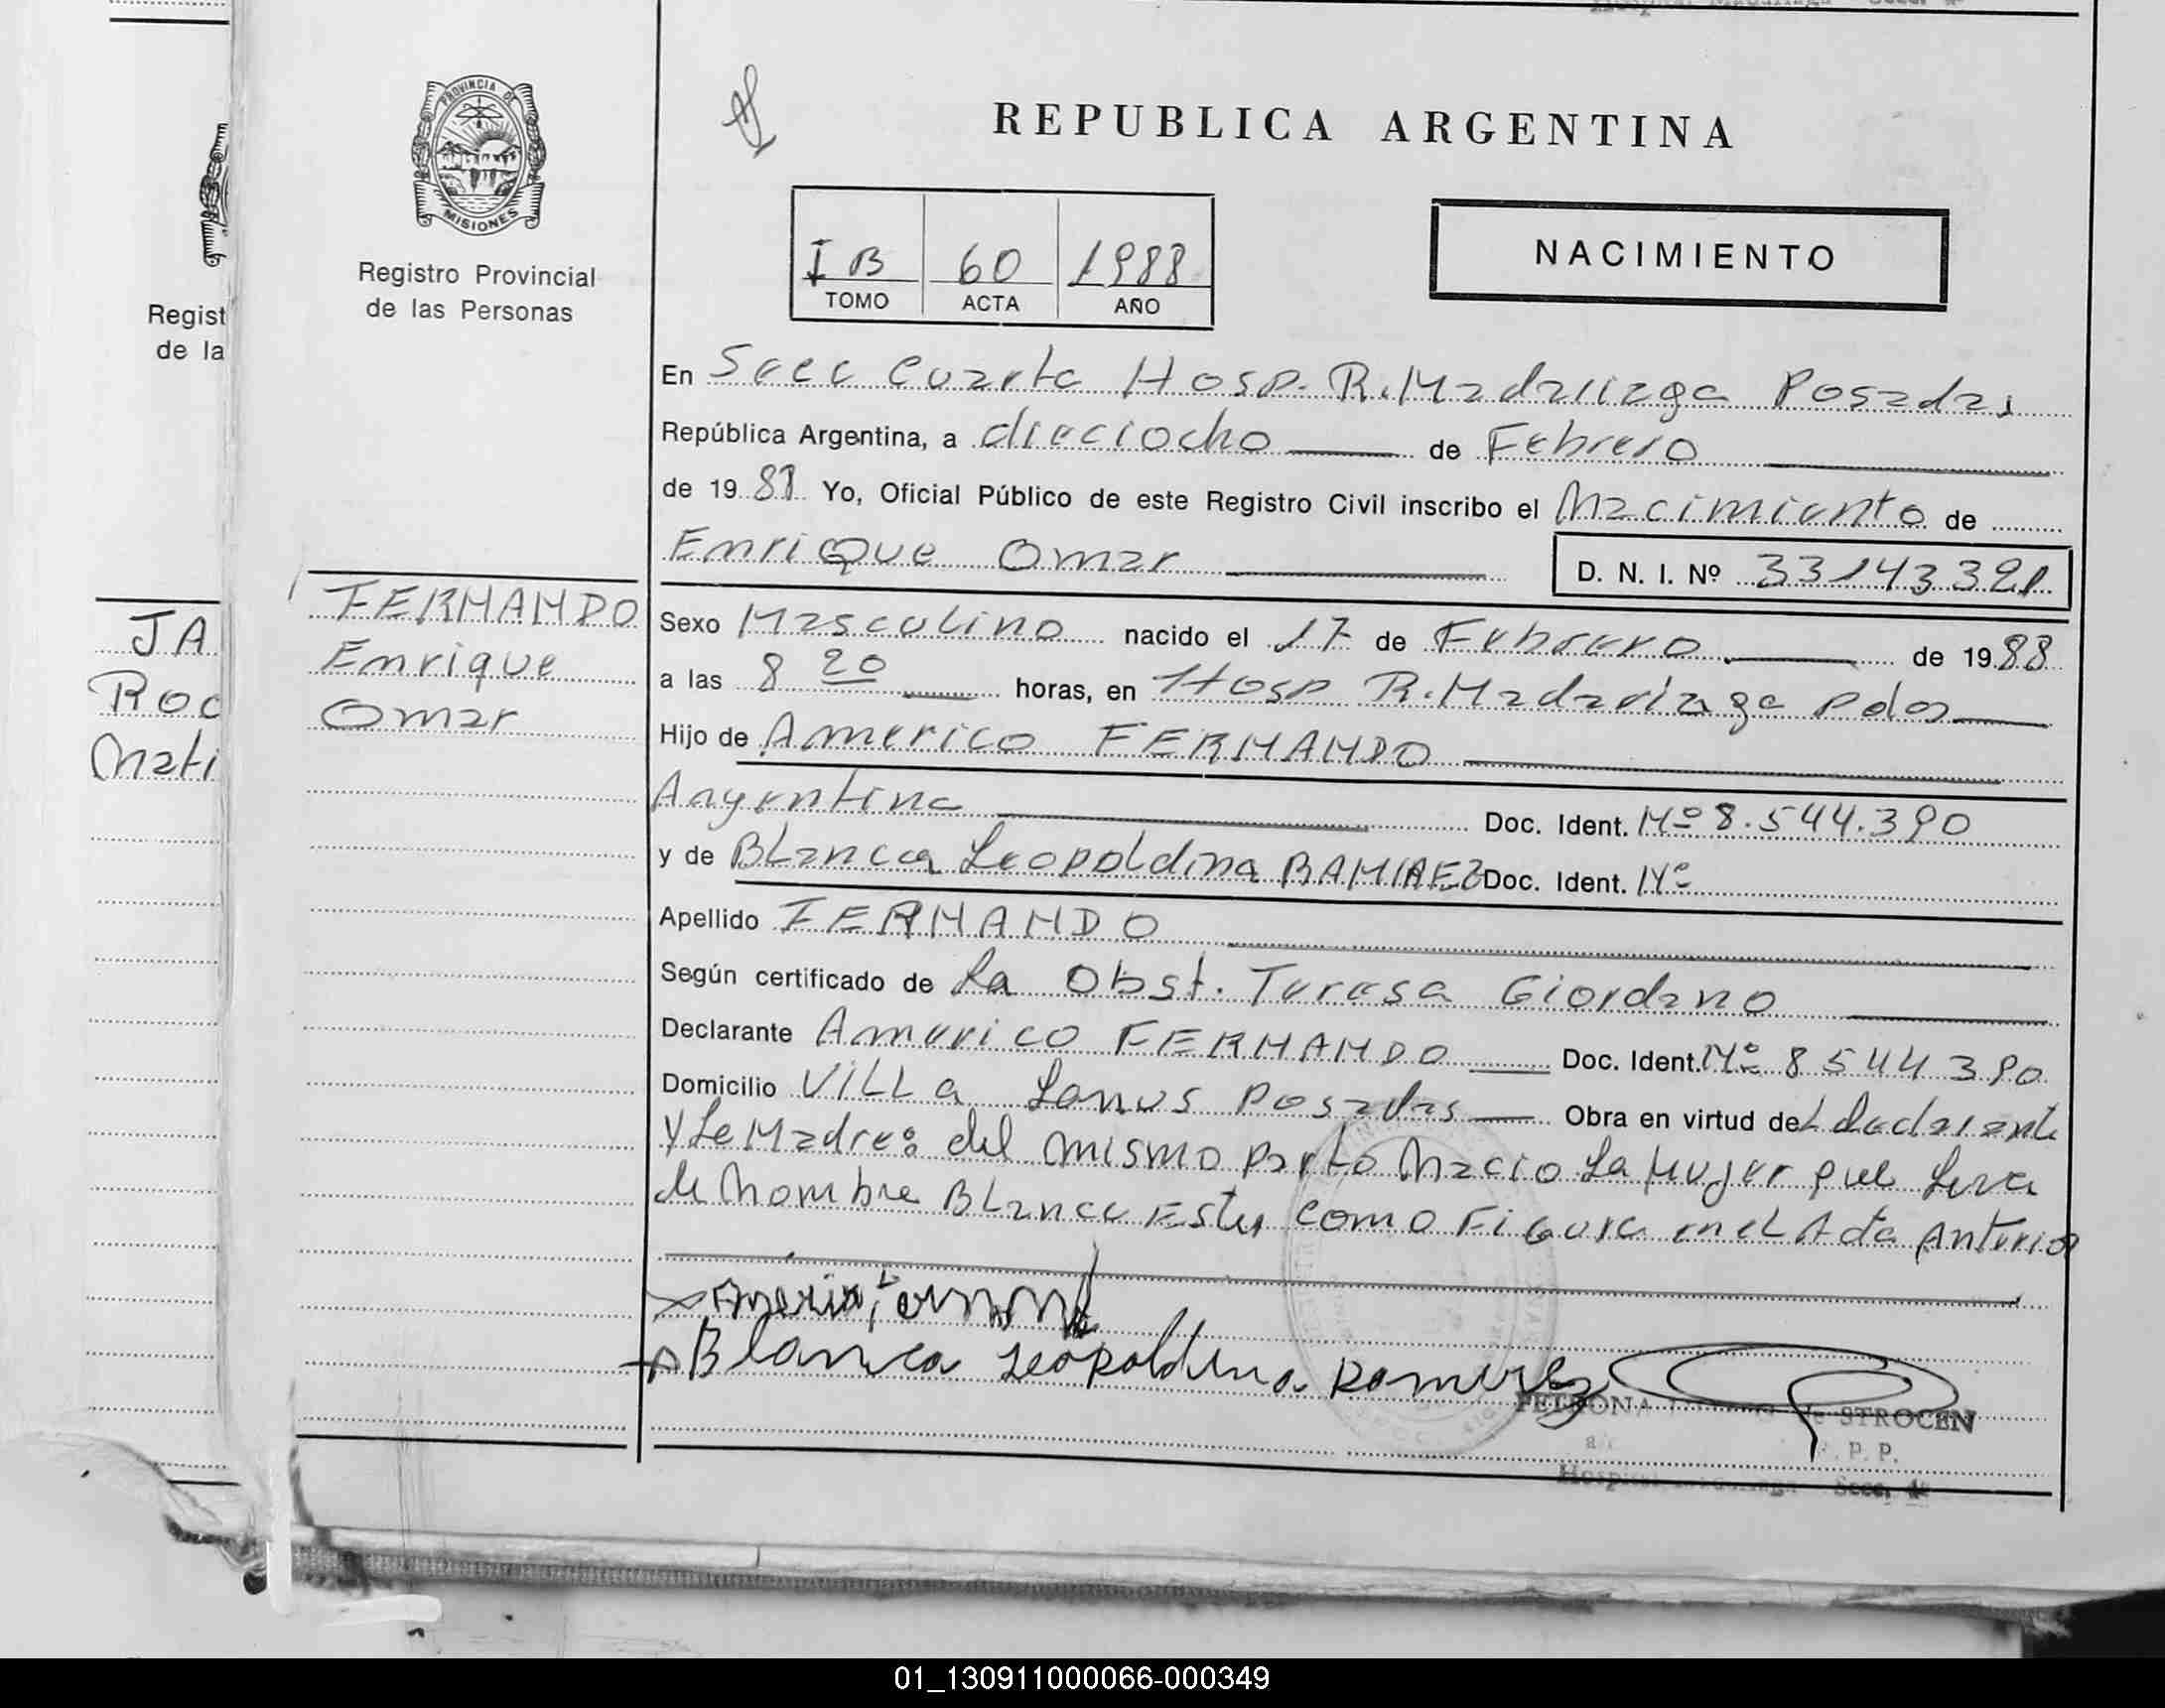 PROVINCIA DE
MISIONES
Registro Provincial
de las Personas
Regist
de la
JA
Roc
Mati
FERNANDO
Enrique
Omar
REPUBLICA ARGENTINA
I B 60 1988
TOMO ACTA AÑO
NACIMIENTO
En Secc Cuarta Hosp. R. Madariaga Posadas
República Argentina, a dieciocho de Febrero
de 19 88 Yo, Oficial Público de este Registro Civil inscribo el Nacimiento de
Enrique Omar D. N. I. Nº
Sexo Masculino nacido el 17 de Febrero de 19 88
a las 8 20 horas, en Hosp R. Madariaga Pdas
Hijo de Americo FERNANDO
Argentina Doc. Ident. Nº 8.544.390
y de Blanca Leopoldina RAMIREZ Doc. Ident. Nº
Apellido FERNANDO
Según certificado de La Obst. Teresa Giordano
Declarante Americo FERNANDO Doc. Ident. Nº 8544390
Domicilio Villa Lanus Posadas Obra en virtud del declarante
y La Madre: del mismo parto Nacio La Mujer que Leva
de Nombre Blanca Ester como Figura en el Acta Anterior
Blanca Leopoldina Ramirez
PETRONA STROCEN
P. P.
Hospital Secc. 4
01_130911000066-000349